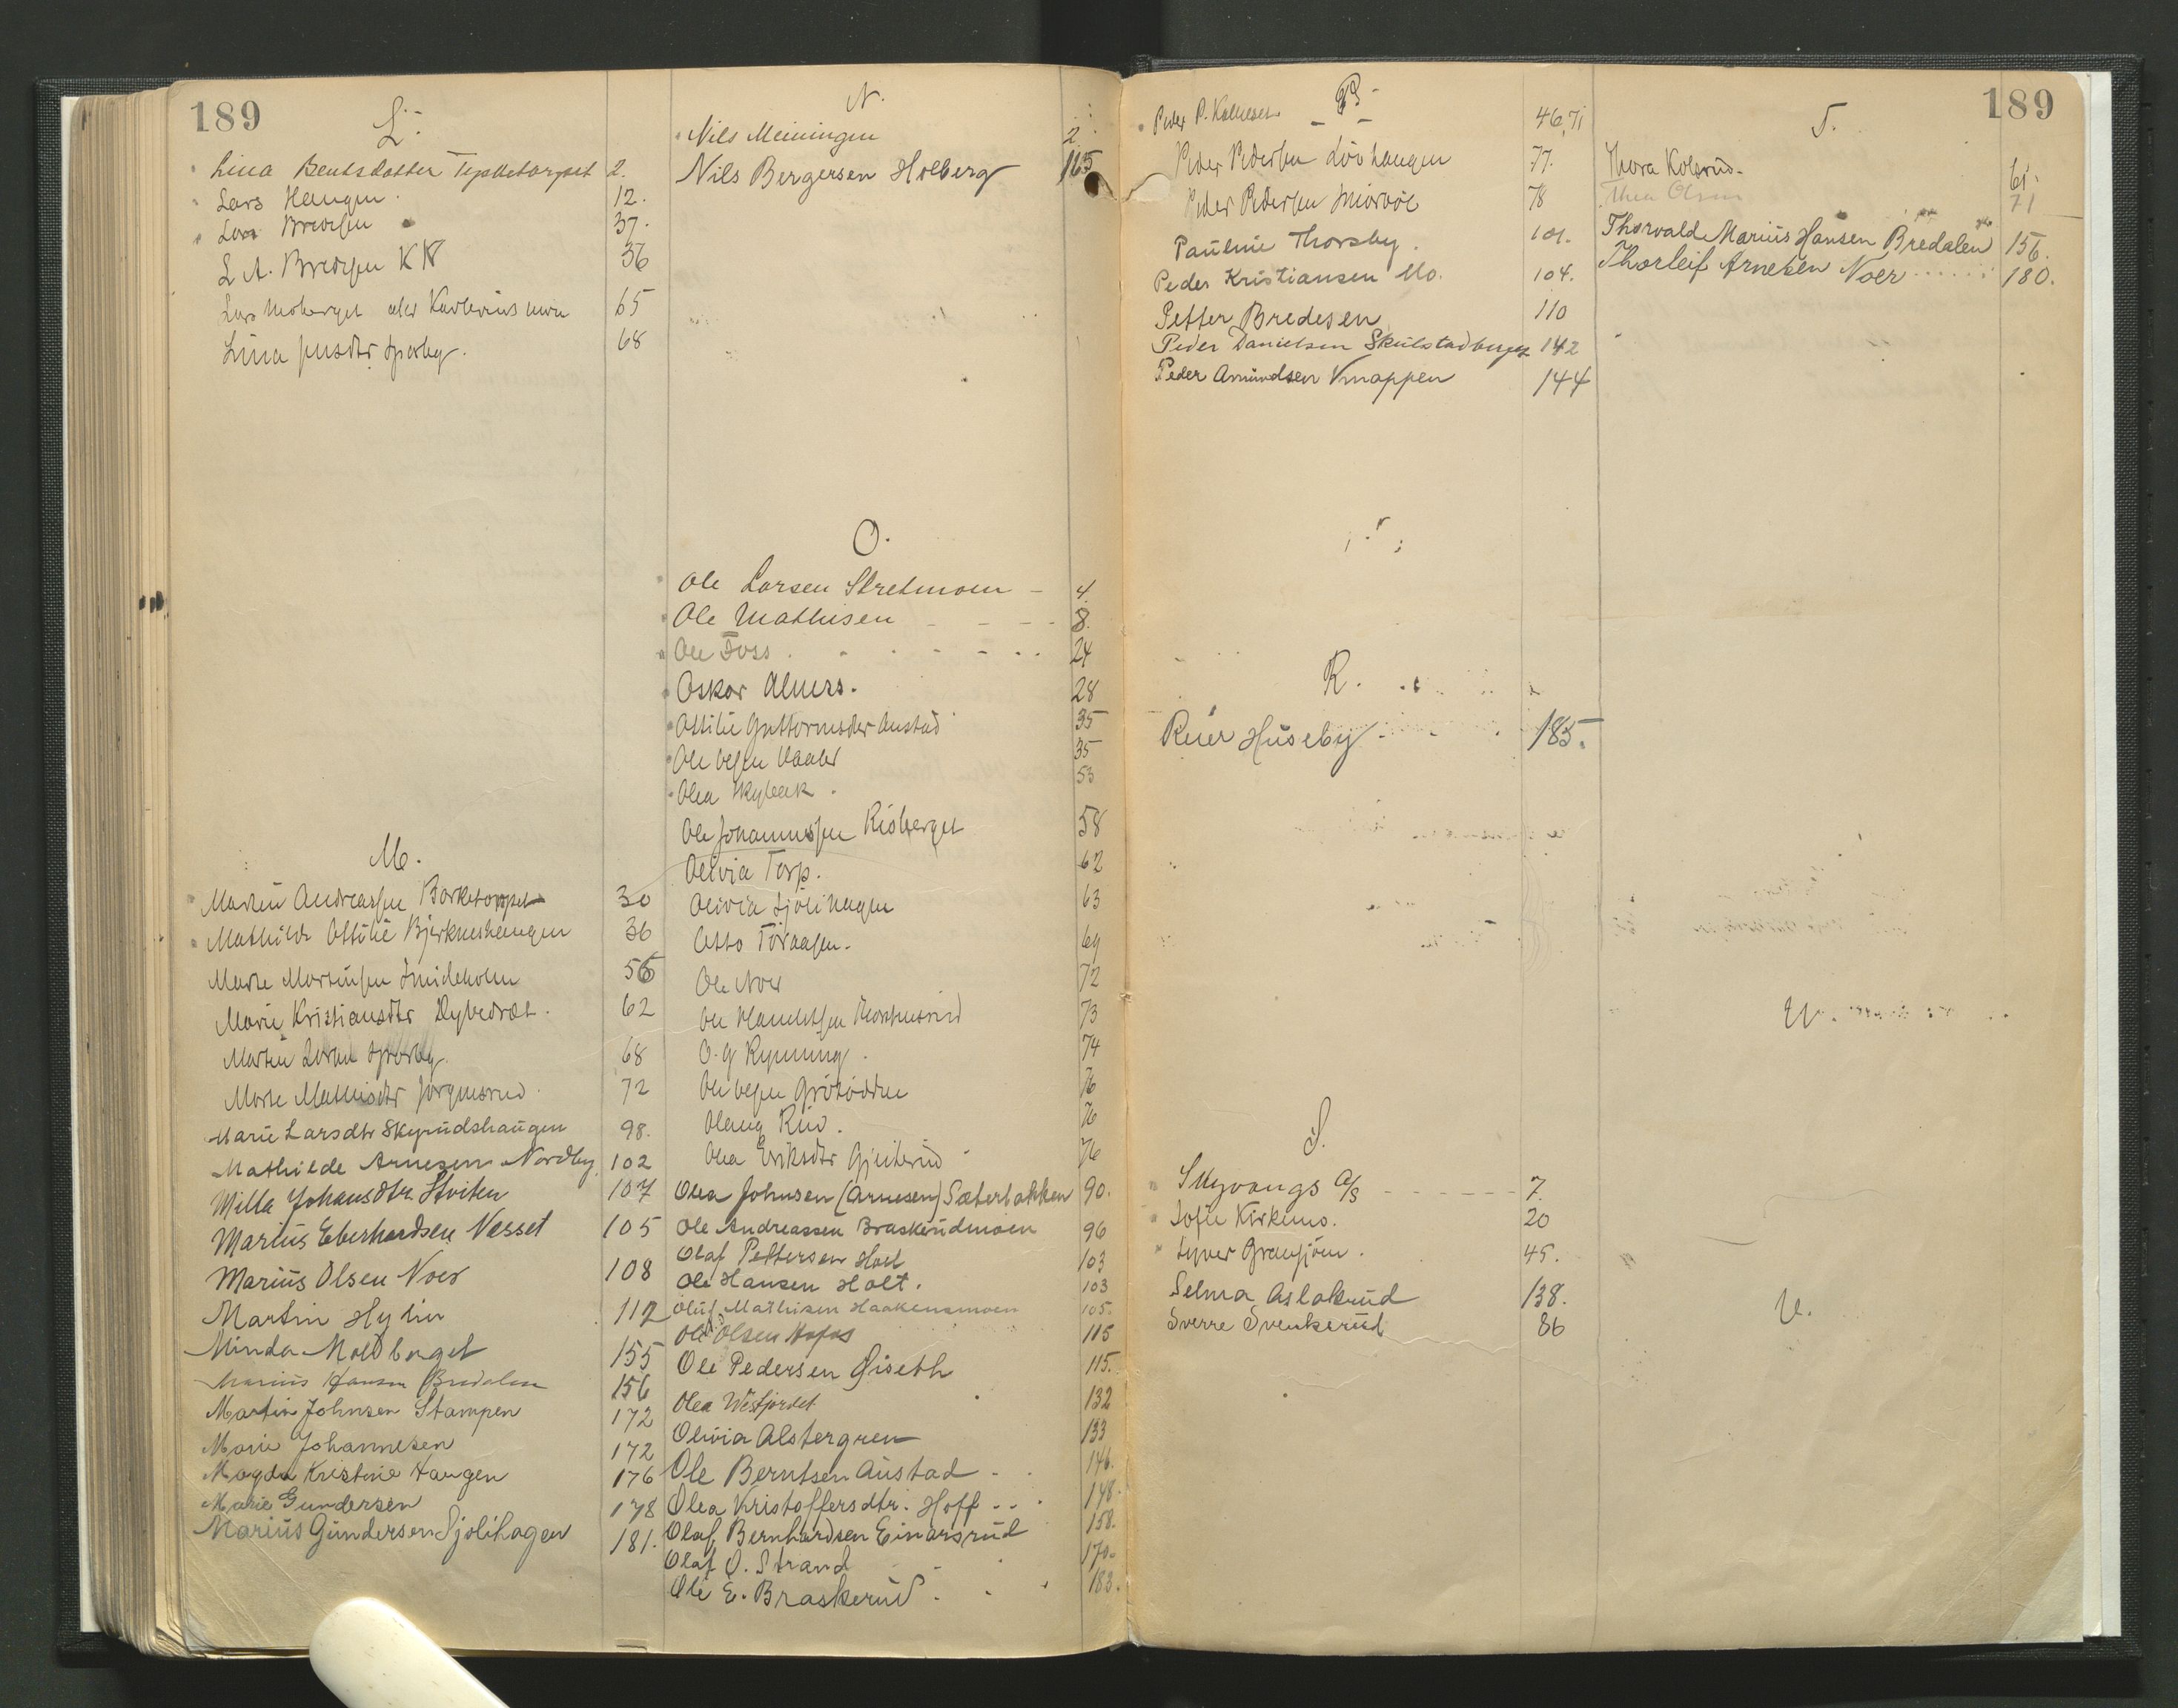 189
L.
Lina Bentsdatter 2.
Lars Haugen. 12.
Lars Bredesen 37.
L A. Bredesen KN 36
Lars Moberget eller 65
Lina Jensdtr Sparby. 68
M.
Martin Andreassen Borketoppet 30
Mathilde Ottilie Bjerkneshaugen 36
Marte Martinsen Smideholm 56
Marie Kristiansdtr Dybedræt. 62
Martin Sparby. 68
Marte Mathisdtr Jørgensrud 72
Marie Larsdtr Skyrudshaugen 98.
Mathilde Arnesen Nordby 102
Milla Johansdtr. Hviten 107
Marius Eberhardsen Nesset 105
Marius Olsen Noer 108
Martin Hylin 112
Minda Moldberget 155
Marius Hansen Bredalen 156
Martin Johnsen Stampen 172
Marie Johannesen 172
Magda Kristine Haugen 176
Marie Gundersen 178
Marius Gundersen Sjølihagen 181.
N.
Nils Meiningen 2
Nils Bergersen Holberg 165
O.
Ole Larsen Stretmoen - 4.
Ole Mathisen - - - - 8.
Ole Foss . - . - - . . 24
Oskar Almers. 28
Ottilie Guttormsdtr Austad 35
Ole Olsen Vaaler 35
Olea Skybak. 53
Ole Johannessen Risberget 58
Olivia Torp. 62
Olivia Sjølihagen 63
Otto Toraasen. 69
Ole Noer 72
Ole 73
O. G Rynning. 74
Ole Olsen Grøtødden 76
Olaug Rud. 76
Olea Eriksdtr Gjeiterud 76
Olea Johnsen (Arnesen) Sæterbakken 90.
Ole Andreassen Braskerudmoen 96
Olaf Pettersen Hoel 103
Ole Hansen Holt. 103
Oluf Mathisen Haakensmoen 105.
Ole Olsen Hofos 115
Ole Pedersen Giseth 115.
Olea Westjordet 132
Olivia Alstergren 133
Ole Berntsen Austad - . 146.
Olea Kristoffersdtr. Hoff - - . 148.
Olaf Bernhardsen Einarsrud 158.
Olaf O. Strand 170.
Ole E. Braskerud - . 183.
P
Peder P. Kolneset 46, 71
Peder Pedersen Løvhaugen 77.
Peder Pedersen 78
Pauline Thorsby. 101.
Peder Kristiansen Mo. 104.
Petter Bredesen 110
Peder Danielsen Skulstadberget 142
Peder Amundsen Knappen 144
R.
Reier Huseby 185.
S.
Skyvangs A/S - - - - - 7.
Sofie Kirkemo. 20
Syver Gransjøen. 45.
Selma Aslakrud 138.
Sverre Svenkerud 86
189
T.
Thora Kolsrud. 61.
Thea Olsen 71
Thorvald Marius Hansen Bredalen 156.
Thorleif Arnesen Noer 180.
U.
V.